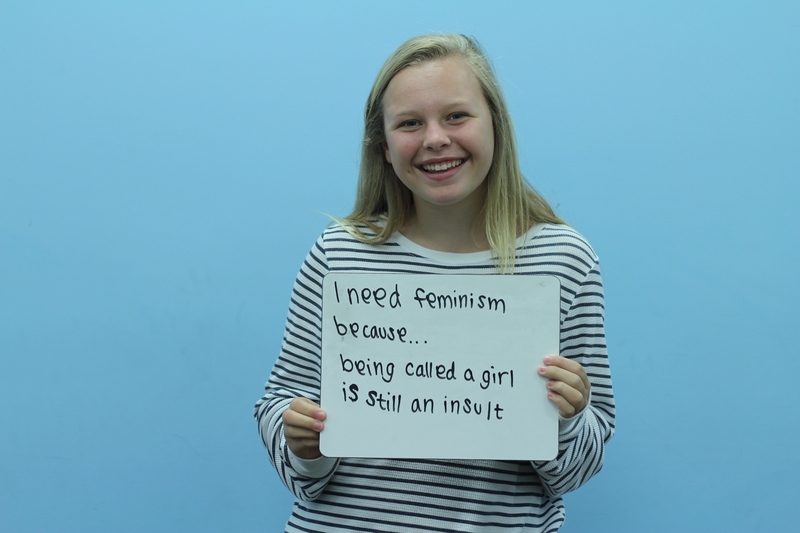 I need feminism
because...
being called a girl
is still an insult